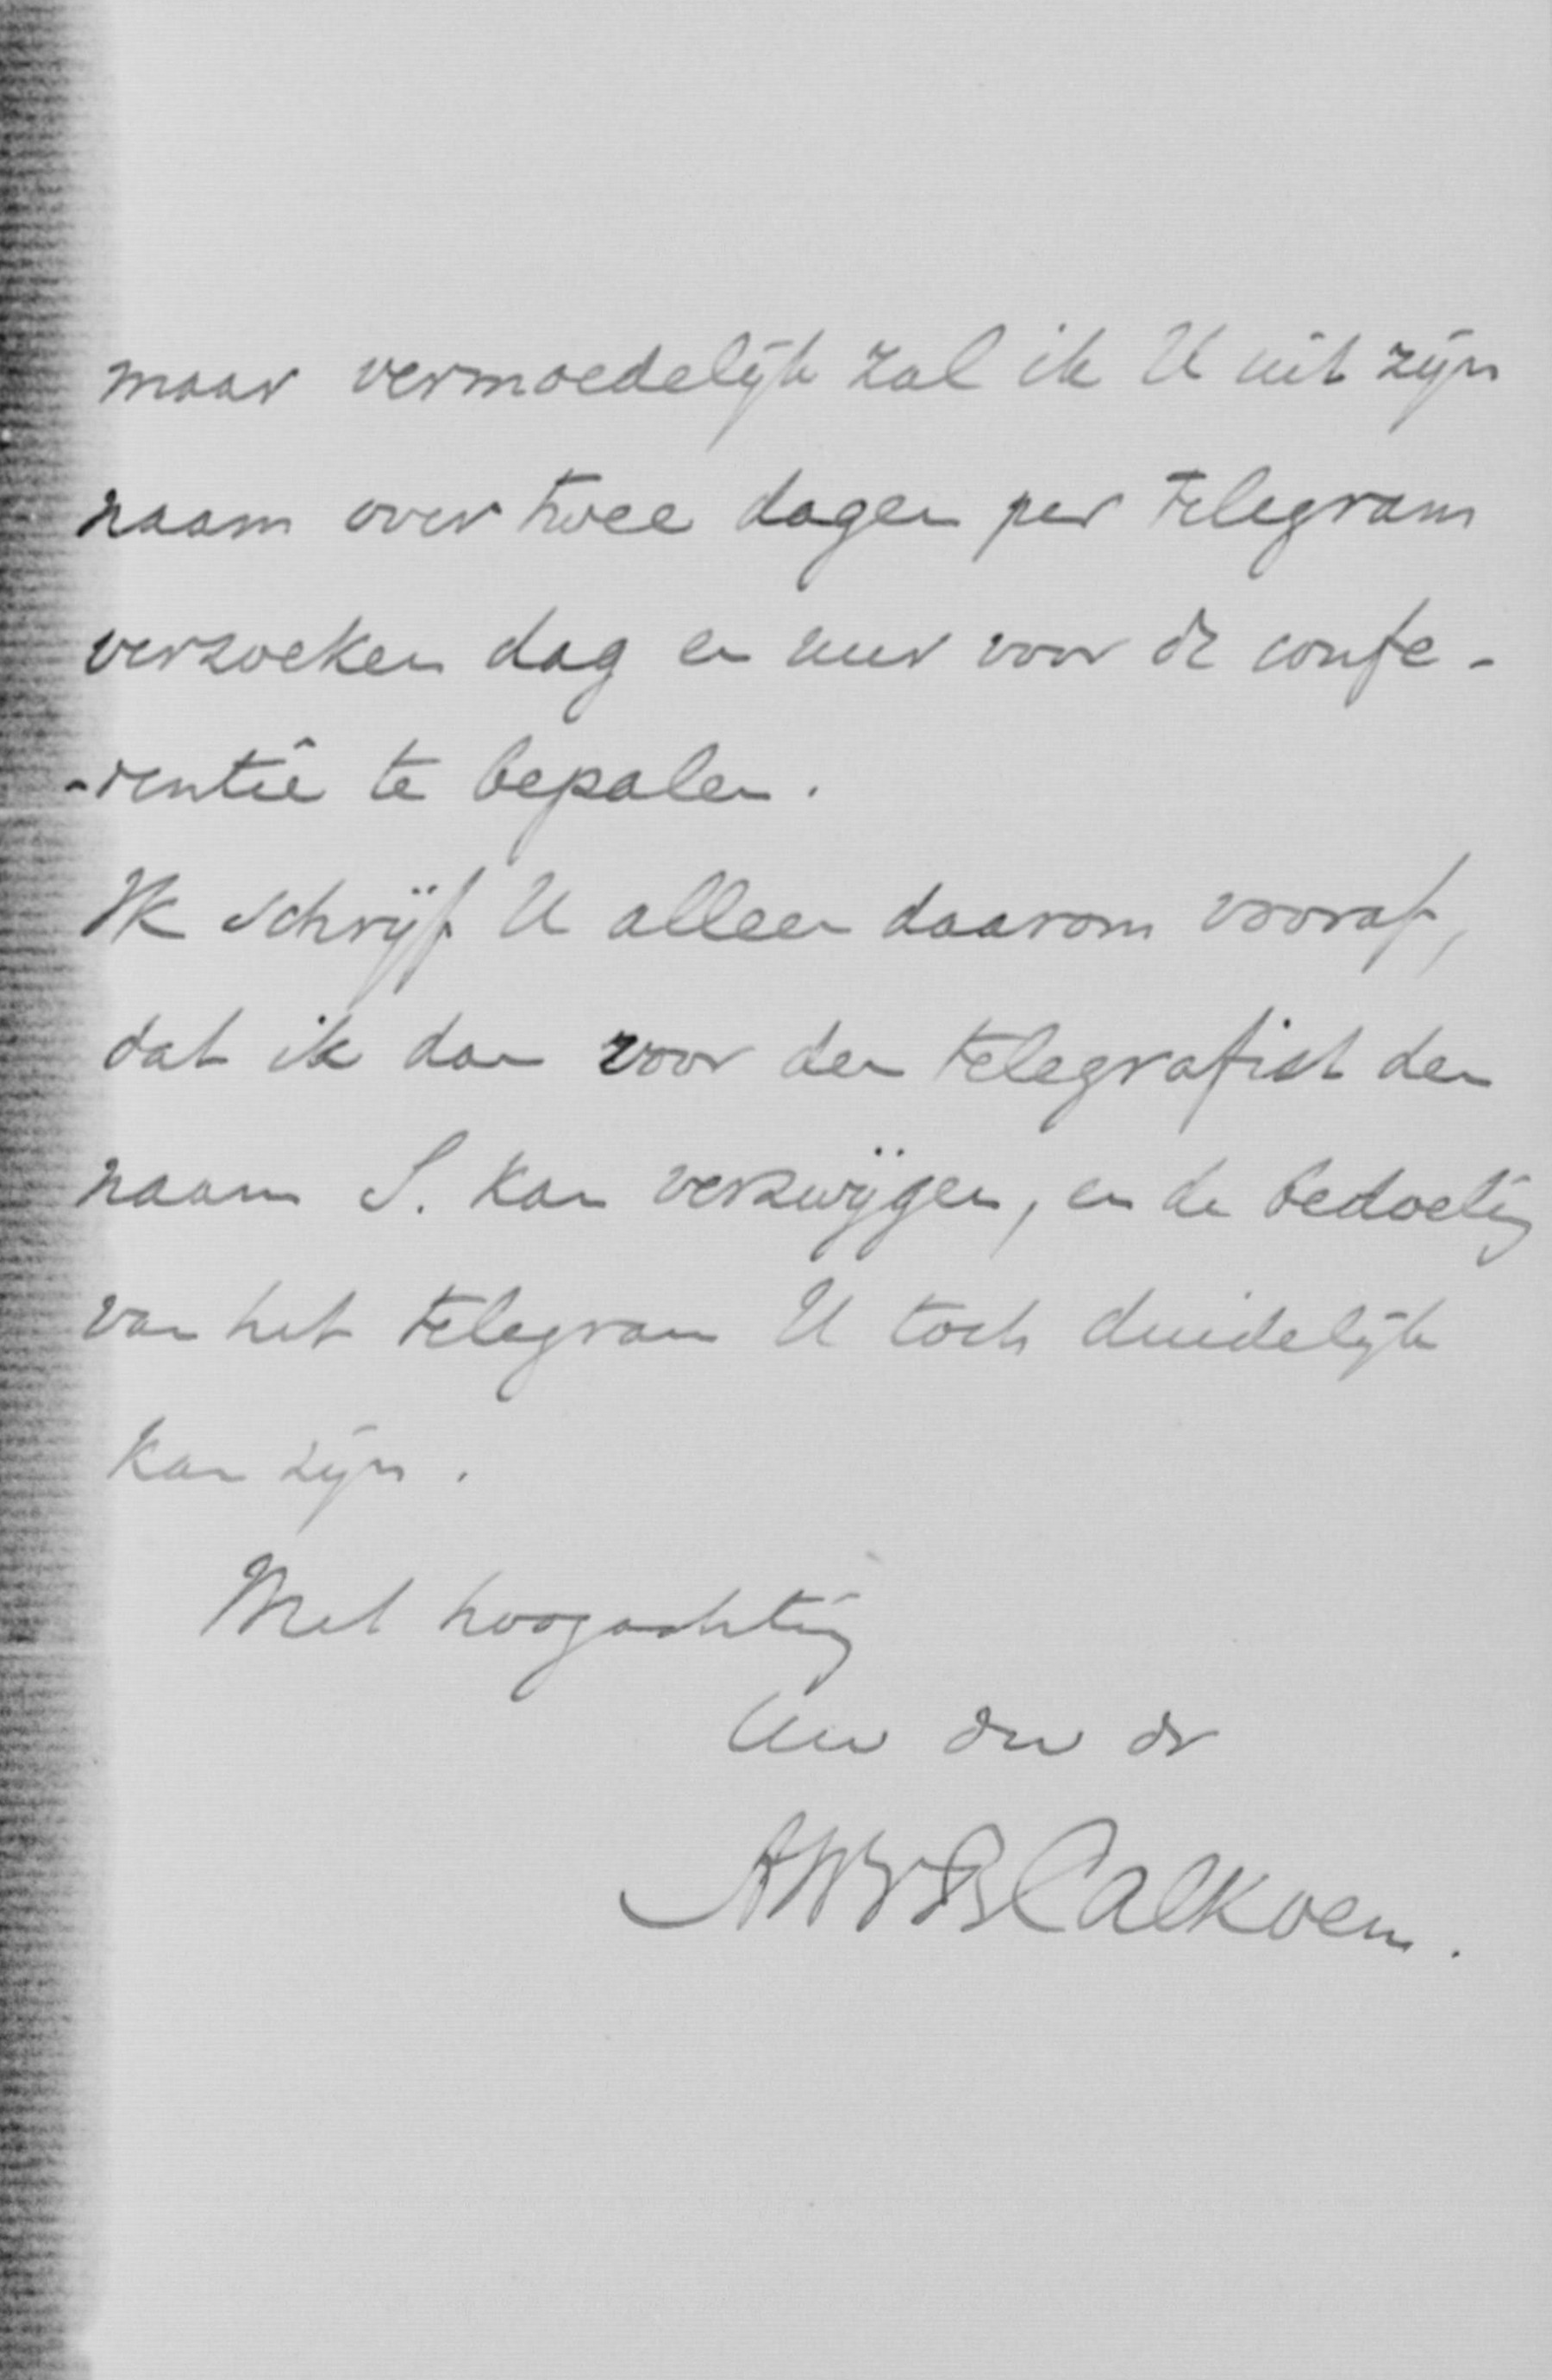 maar vermoedelijk zal ik U uit zijn
naam over twee dagen per telegram
verzoeken dag en uur voor de confe-
-rentie te bepalen.
Ik schrijf U alleen daarom vooraf,
dat ik dan voor den telegrafist den
naam S. kan verzwijgen, en de bedoeling
van het telegram U toch duidelijk
kan zijn.
Met hoogachting
Uw dw dr
Calkoen.